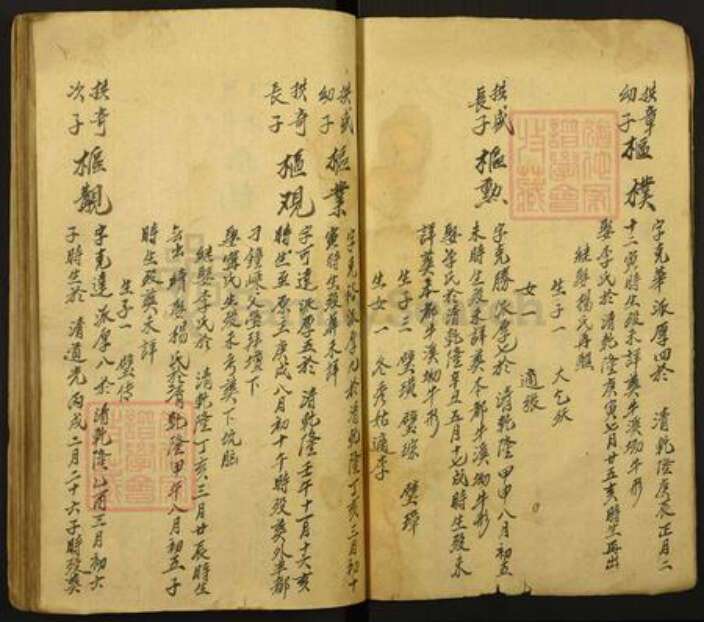 拱章
幼子 樞樸
字克華派厚四於 清乾隆庚辰正月二
十二寅時生殁未詳葬牛溪坳牛形
娶李氏於清乾隆庚寅七月廿五亥時生再出
継娶楊氏再醮
生子一 大乞
女一 適張
拱盛
長子 樞勲
字克勝派厚七於 清乾隆甲申八月初五
未時生殁未詳葬本都牛溪坳牛形
娶李氏於清乾隆辛丑五月十七戌時生殁未
詳葬本都牛溪坳牛形
生子三 璧璜 璧琮 璧璋
生女一 冬秀姑適李
拱盛
幼子 樞業
字克 派厚九於清乾隆丁亥三月初十
寅時生殁葬未詳
拱奇
長子 樞观
字可達派厚五於 清乾隆壬午十一月十六亥
時生至 庚戌八月初十午時殁葬外 都
娶甯氏生殁未考葬下坑
継娶李氏於 清乾隆丁亥三月廿辰時生
楊氏於清乾隆甲午八月初五子
時生殁葬未詳
生子一 璧傳
拱奇
次子 樞覯
字克達派厚八於清乾隆 三月初六
子時生於 清道光丙戌二月二十六子時殁葬